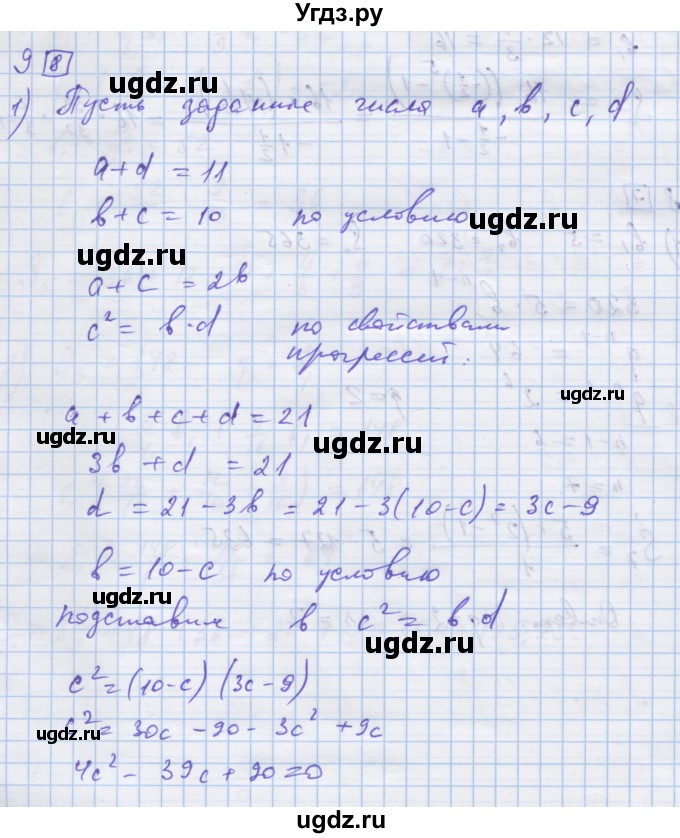 Угдз.ру
9 8
1) Пусть заданные числа a, b, c, d
a + d = 11
b + c = 10 по условию
a + c = 2b
c² = b · d по свойствам
прогрессий:
a + b + c + d = 21
3b + d = 21
d = 21 - 3b = 21 - 3(10-c) = 3c - 9
b = 10 - c по условию
подставим в c² = b · d
c² = (10-c) (3c-9)
c² = 30c - 90 - 3c² + 9c
4c² - 39c + 90 = 0
ugdz.ru
ugdz.ru
ugdz.ru
ugdz.ru
ugdz.ru
ugdz.ru
ugdz.ru
ugdz.ru
ugdz.ru
ugdz.ru
ugdz.ru
ugdz.ru
ugdz.ru